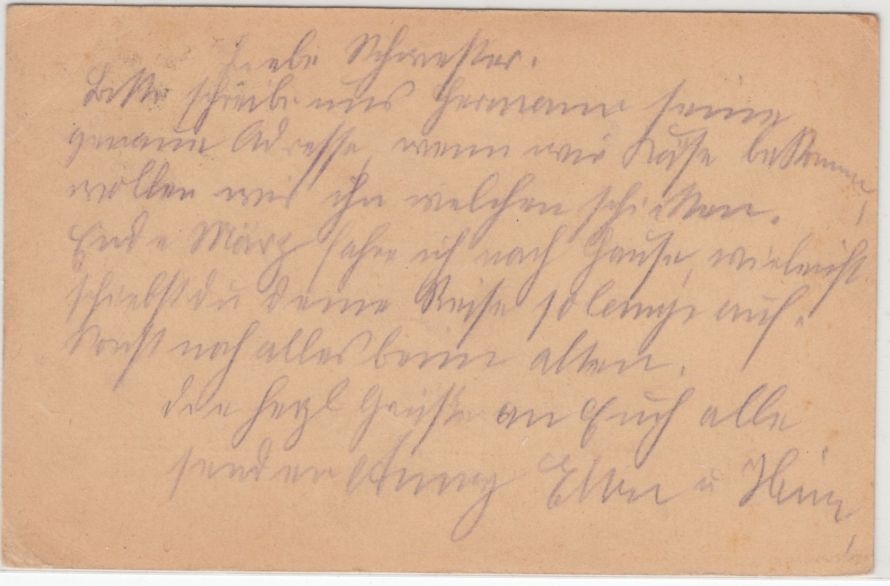 Liebe Schwester.
Bitte schreibe uns Hermann seine
genaue Adresse, wenn wir Käse bekommen,
wollen wir ihn welchen schicken.
Ende März fahre ich nach Hause, vieleicht
schiebst du deine Reise solange auf.
Sonst noch alles beim alten.
Die herzl Grüße an Euch alle
senden u